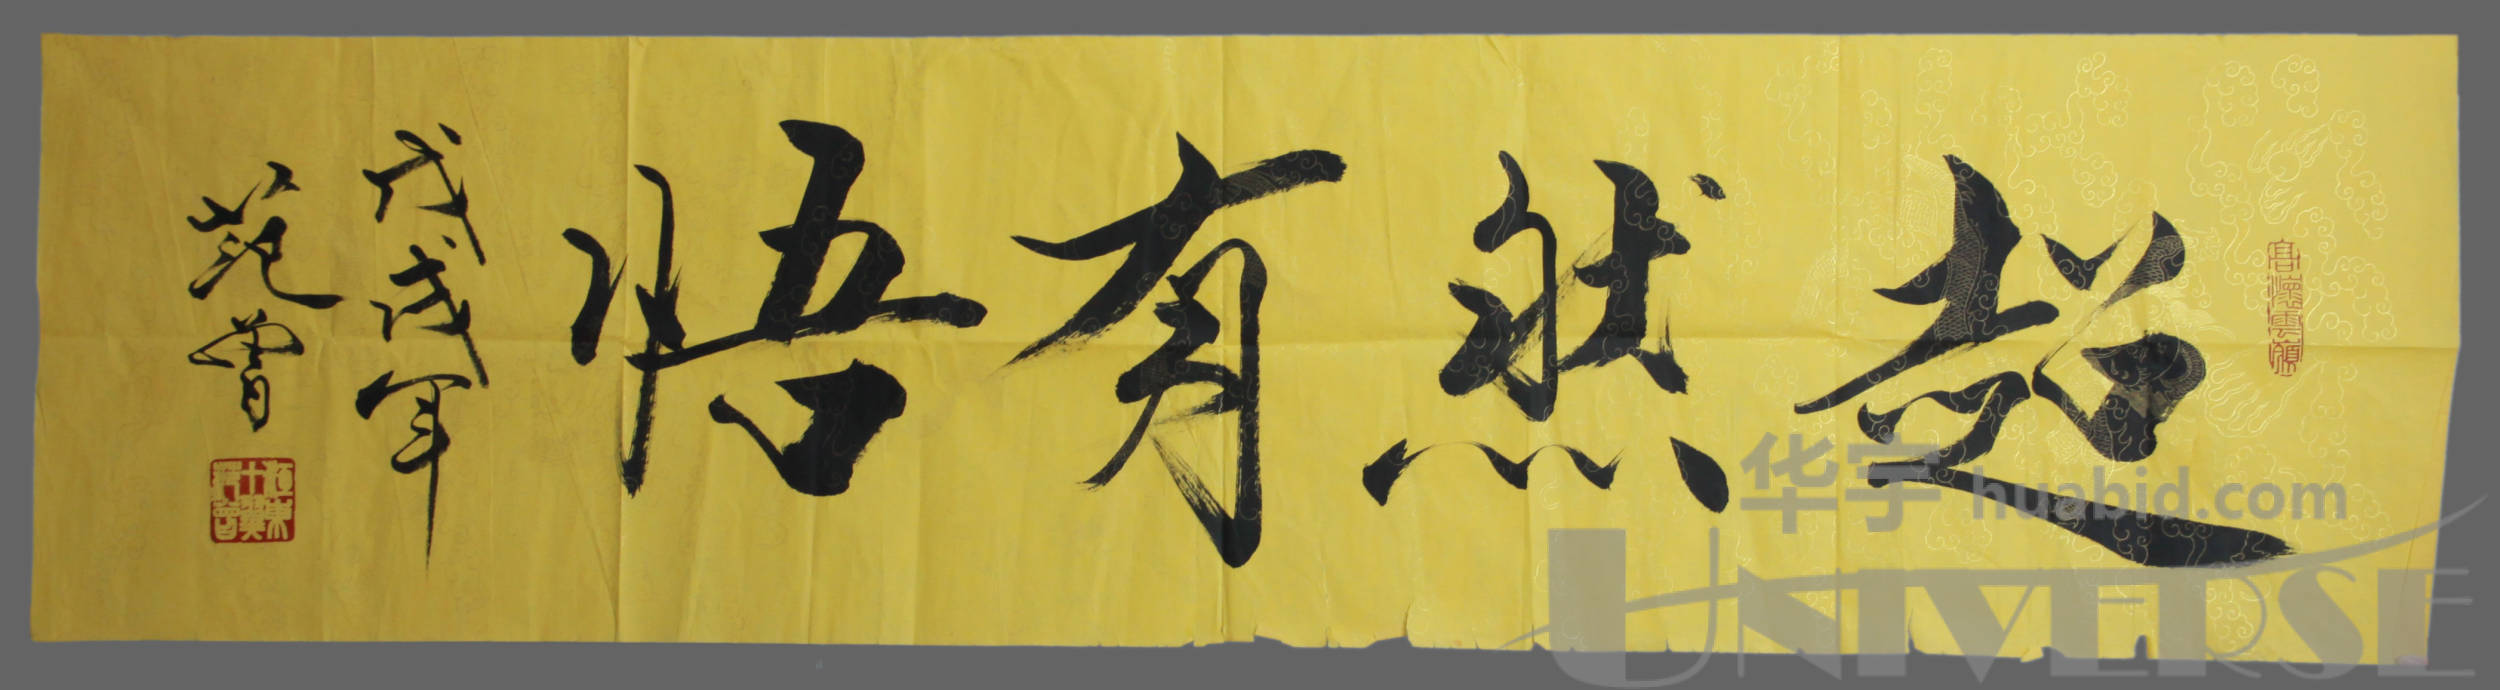 超然有悟
戊戌年
范曾
高懷雲嶺
华宇 huabid.com
UNIVERSE